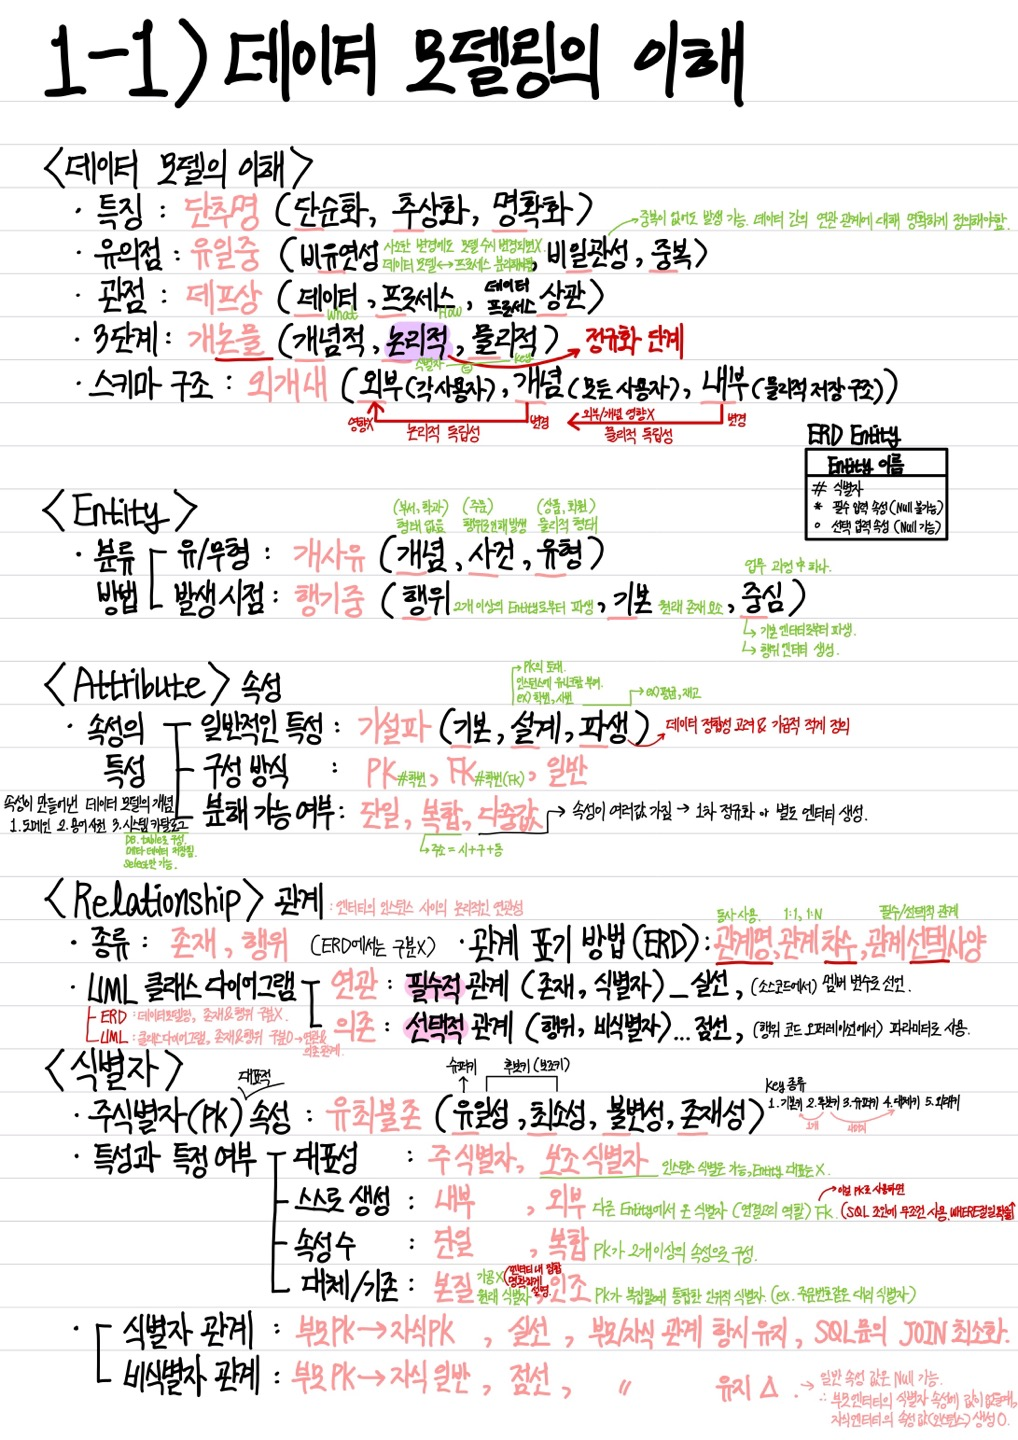 1-1) 데이터 모델링의 이해
<데이터 모델의 이해>
· 특징 : 단추명 (단순화, 추상화, 명확화)
→ 중복이 없어도 발생 가능. 데이터 간의 연관 관계에 대해 명확하게 정의해야함.
· 유의점 : 유일중 (비유연성 사소한 변경에도 모델 수시 변경되면X. 데이터 모델↔프로세스 분리, 비일관성, 중복)
· 관점 : 데프상 (데이터, 프로세스, 데이터 프로세스 상관)
What How
· 3단계 : 개논물 (개념적, 논리적, 물리적) → 정규화 단계
식별자 Key
· 스키마 구조 : 외개내 (외부(각 사용자), 개념(모든 사용자), 내부(물리적 저장 구조))
영향X 논리적 독립성 변경 외부/개념 영향X 물리적 독립성 변경
ERD Entity
Entity 이름
# 식별자
* 필수 입력 속성 (Null 불가능)
○ 선택 입력 속성 (Null 가능)
<Entity>
(부서, 학과) (주문) (상품, 회원)
형태 없음 행위로 인해 발생 물리적 형태
· 분류 유/무형 : 개사유 (개념, 사건, 유형)
업무 과정 中 하나.
방법 발생시점 : 행기중 (행위 2개 이상의 Entity로부터 파생, 기본 원래 존재 요소, 중심)
↳ 기본 엔터티로부터 파생.
↳ 행위 엔터티 생성.
<Attribute> 속성
→ PK의 토대.
인스턴스에 유니크함 부여.
ex) 학번, 사번
→ ex) 평균, 재고
· 속성의 일반적인 특성 : 기설파 (기본, 설계, 파생) → 데이터 정합성 고려 & 가급적 적게 정의
특성 구성 방식 : PK #학번, FK #학번(FK), 일반
분해 가능 여부 : 단일, 복합, 다중값 → 속성이 여러값 가짐 → 1차 정규화 or 별도 엔터티 생성.
↳ 주소 = 시+구+동
속성이 만들어낸 데이터 모델의 개념
1. 도메인 2. 용어사전 3. 시스템 카탈로그
DB. table로 구성.
메타 데이터 저장됨.
Select만 가능.
<Relationship> 관계 : 엔터티의 인스턴스 사이의 논리적인 연관성
동사 사용. 1:1, 1:N 필수/선택적 관계
· 종류 : 존재, 행위 (ERD에서는 구분X) · 관계 표기 방법(ERD) : 관계명, 관계 차수, 관계 선택 사양
· UML 클래스 다이어그램 연관 : 필수적 관계 (존재, 식별자) _ 실선, (소스코드에서) 멤버 변수로 선언.
ERD : 데이터모델링, 존재&행위 구분X.
의존 : 선택적 관계 (행위, 비식별자) ... 점선, (행위 코드 오퍼레이션에서) 파라미터로 사용.
UML : 클래스다이어그램, 존재&행위 구분O → 연관&의존 관계.
<식별자>
대표적 슈퍼키 후보키 (보조키)
· 주식별자(PK) 속성 : 유최불존 (유일성, 최소성, 불변성, 존재성)
Key 종류
1. 기본키 2. 후보키 3. 슈퍼키 4. 대체키 5. 외래키
· 특성과 특정 여부 대표성 : 주식별자, 보조 식별자 인스턴스 식별은 가능, Entity 대표는 X.
→ 이를 PK로 사용하면
스스로 생성 : 내부, 외부 다른 Entity에서 온 식별자 (연결고리 역할) FK. (SQL 조인에 무조건 사용.
속성 수 : 단일, 복합 PK가 2개 이상의 속성으로 구성.
대체/기존 : 본질 가공X 원래 식별자 (엔터티 내 집합 명확하게 설명., 인조 PK가 복잡할때 통합한 인위적 식별자. (ex. 주문번호같은 대리 식별자)
· 식별자 관계 : 부모PK→자식PK, 실선, 부모/자식 관계 항시 유지, SQL문의 JOIN 최소화.
비식별자 관계 : 부모PK→자식 일반, 점선, 〃 유지 △. → 일반 속성 값은 Null 가능.
∴ 부모엔터티의 식별자 속성에 값이 없을때,
자식엔터티의 속성 값(인스턴스) 생성O.